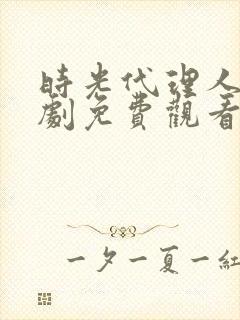 時光代理人
劇免費觀看
一夕一夏一紅